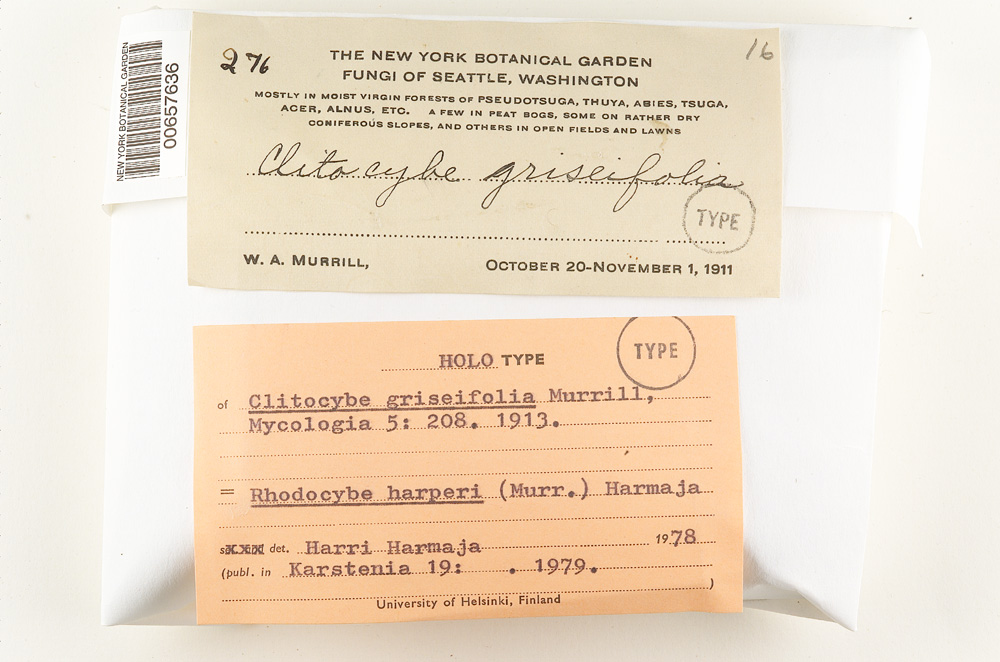 NEW YORK BOTANICAL GARDEN
00657636
276
16
THE NEW YORK BOTANICAL GARDEN
FUNGI OF SEATTLE, WASHINGTON
MOSTLY IN MOIST VIRGIN FORESTS OF PSEUDOTSUGA, THUYA, ABIES, TSUGA,
ACER, ALNUS, ETC. A FEW IN PEAT BOGS, SOME ON RATHER DRY
CONIFEROUS SLOPES, AND OTHERS IN OPEN FIELDS AND LAWNS
Clitocybe griseifolia
TYPE
W. A. MURRILL, OCTOBER 20-NOVEMBER 1, 1911
TYPE
HOLO TYPE
of Clitocybe griseifolia Murrill,
Mycologia 5: 208. 1913.
= Rhodocybe harperi (Murr.) Harmaja
det. Harri Harmaja 1978
(publ. in Karstenia 19: . 1979. )
University of Helsinki, Finland